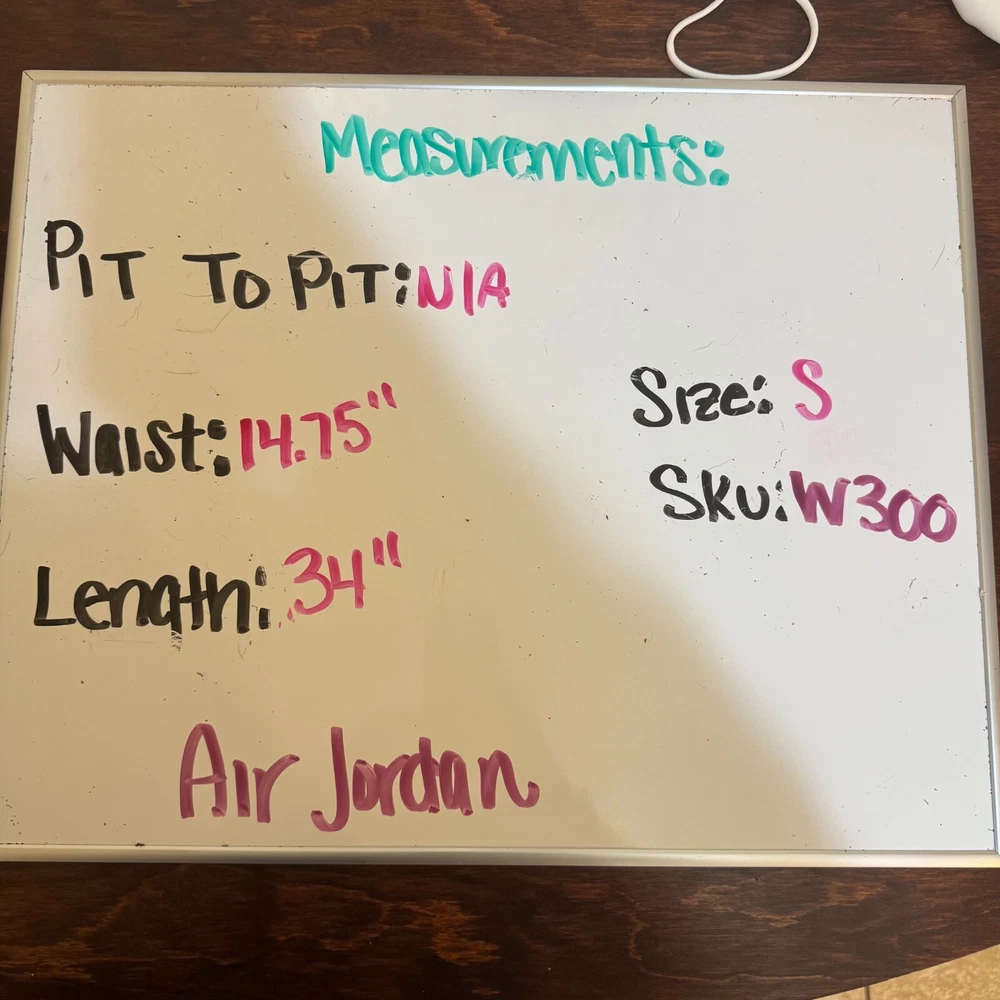 Measurements:
PIT TO PIT: N/A
Waist: 14.75"
Length: 34"
Size: S
SKU: W300
Air Jordan